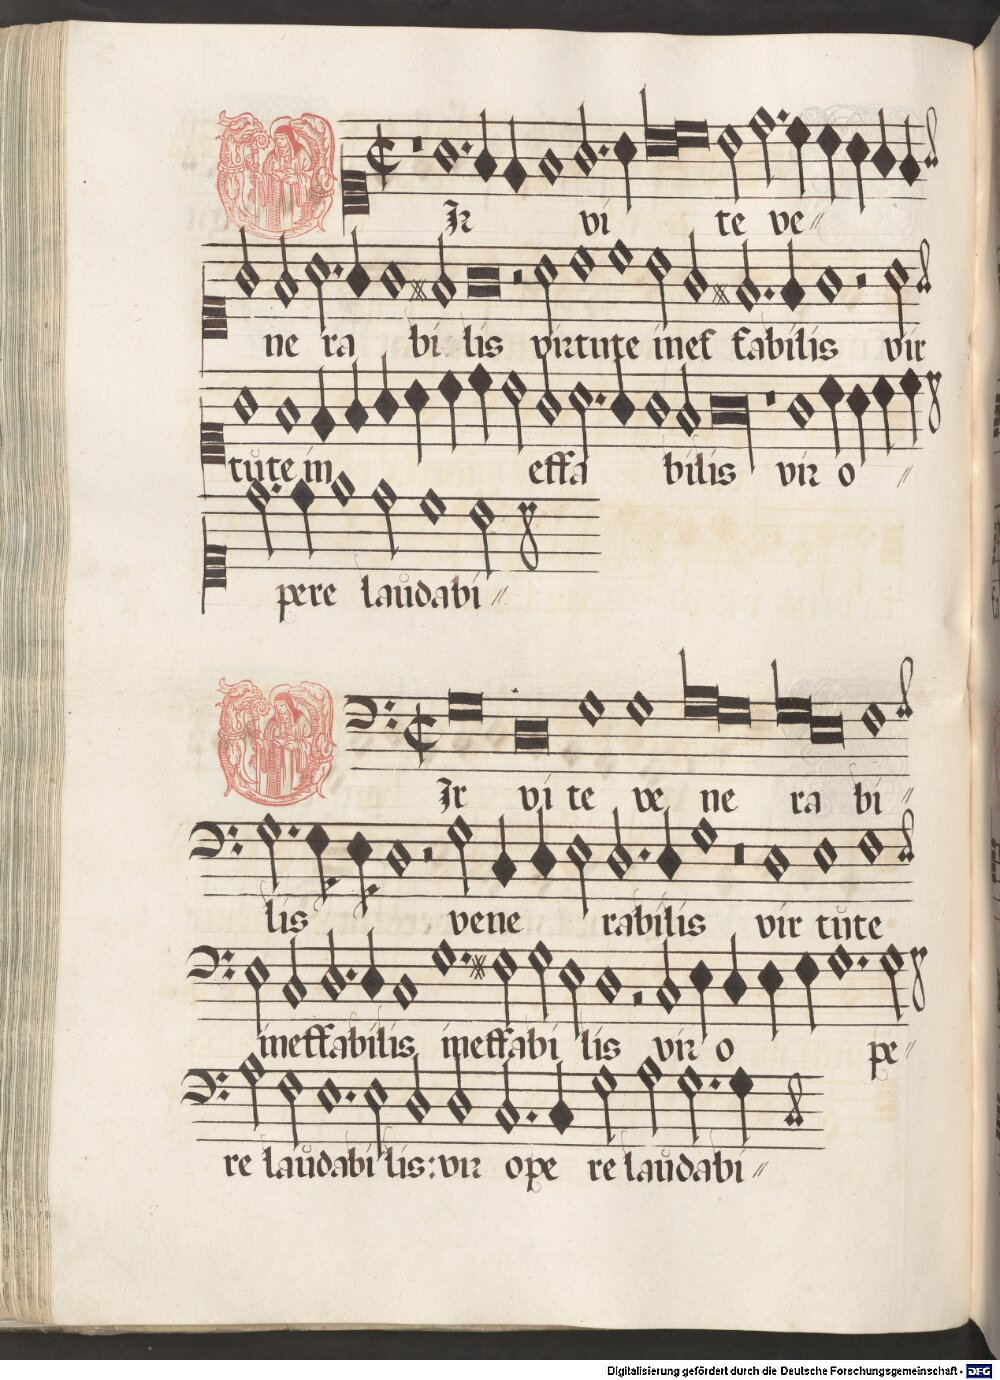 Ir vi te ve〃
ne ra bi lis virtute inef fabilis vir
tute in effa bilis vir o〃
pere laudabi〃
Ir vi te ve ne ra bi〃
lis vene rabilis vir tute
ineffabilis ineffabi lis vir o pe〃
re laudabi lis: vir ope re laudabi〃
Digitalisierung gefördert durch die Deutsche Forschungsgemeinschaft - DFG